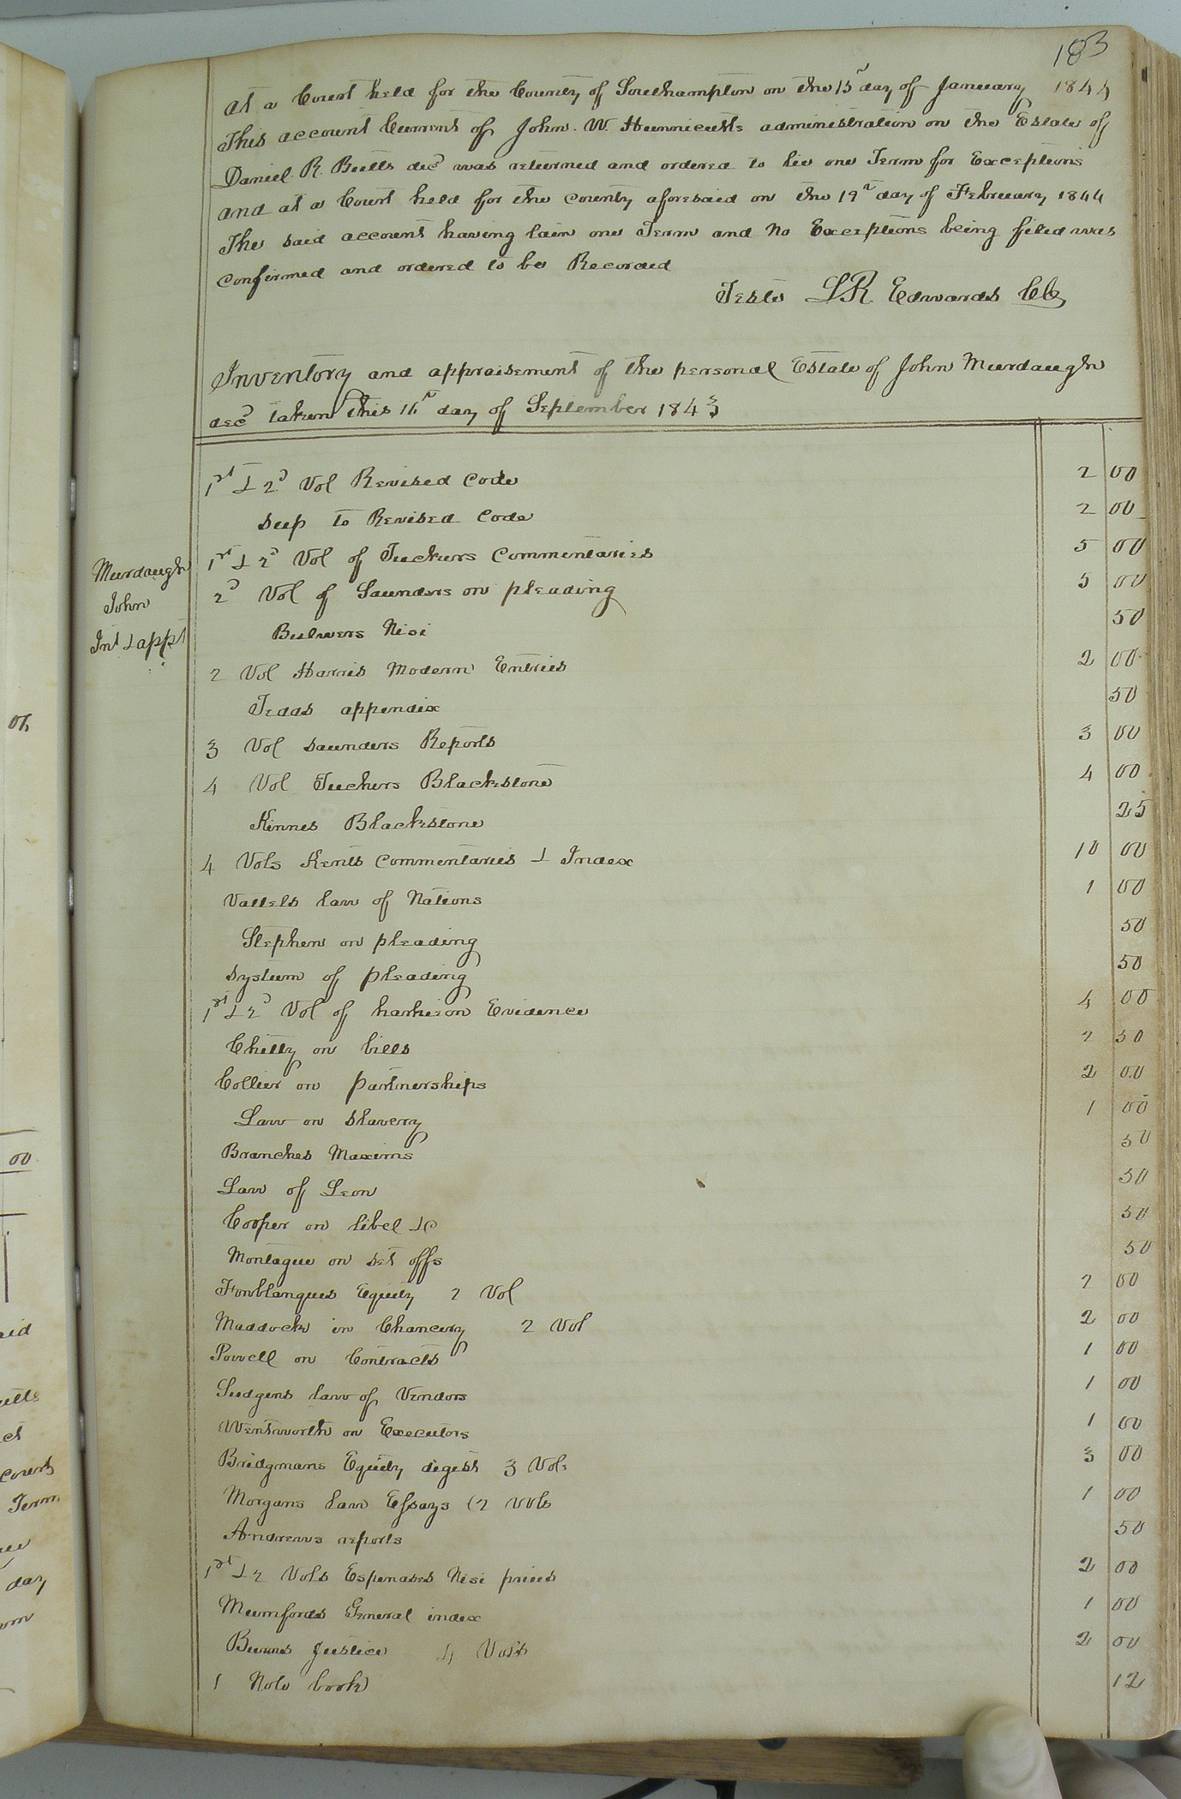 183
At a Court held for the County of Southampton on the 15th day of January 1844
This account Current of John. W. Hunnicutts administration on the Estate of
Daniel R. Butts decd was returned and ordered to lie one Term for Exceptions
and at a Court held for the county aforesaid on the 19th day of February 1844
The said account having lain one Term and no Exceptions being filed was
confirmed and ordered to be Recorded
Teste LR Edwards Clk
Inventory and appraisement of the personal Estate of John Murdaugh
decd taken this 16th day of September 1843
Murdaugh
John
Invt & appt
1st & 2d Vol Revised Code 2 00
Sup to Revised Code 2 00
1st & 2d Vol of Tuckers Commentaries 5 00
2d Vol of Saunders on pleading 5 00
Bulwers Nisi 50
2 Vol Harris Modern Entries 2 00
Tedds appendix 50
3 Vol Saunders Reports 3 00
4 Vol Tuckers Blackstone 4 00
Kinnes Blackstone 25
4 Vols Kents Commentaries & Index 10 00
Vattels Law of Nations 1 00
Stephen on pleading 50
System of pleading 50
1st & 2d Vol of harkison Evidence 4 00
Chitty on bills 2 50
Collier on partnerships 2 00
Law on Slavery 1 00
Branches Maxims 50
Law of Leon 50
Cooper on libel &c 50
Montague on set offs 50
Fonblanques Equity 2 Vol 2 00
Maddock in Chancery 2 Vol 2 00
Powell on Contracts 1 00
Sudgens Law of Vendors 1 00
Wentworth on Executors 1 00
Bridgmans Equity digest 3 Vols 3 00
Morgans Law Essays (2 Vols 1 00
Andrews reports 50
1st & 2 Vols Espenases Nisi prices 2 00
Mumfords General index 1 00
Burns Justice 4 Vols 2 00
1 Note book 12
00
aid
utts
ct
Court
Term
day